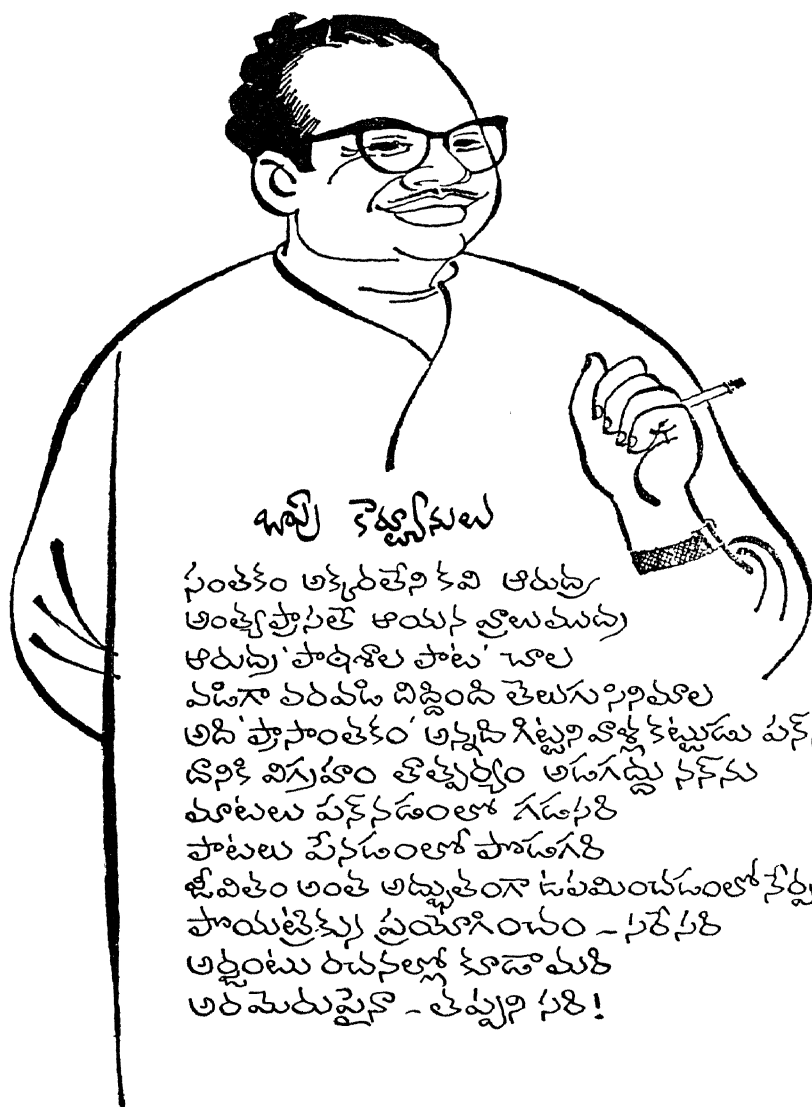 బాపు కార్ట్యూనులు
సంతకం అక్కరలేని కవి ఆరుద్ర
అంత్యప్రాసతో ఆయన వ్రాలుముద్ర
ఆరుద్ర 'పాఠశాల పాట' చాల
వడిగా వరవడి దిద్దింది తెలుగుసినిమాల
అది 'ప్రాసాంతకం' అన్నది గిట్టనివాళ్ల కట్టుడు
దానికి విగ్రహం తాత్పర్యం అడగద్దు నన్‌ను
మాటలు పన్‌నడంలో గడసరి
పాటలు పేనడంలో పొడగరి
జీవితం అంత అద్భుతంగా ఉపమించడంలో
పొయట్రీక్కు ప్రయోగించం - సరేసరి
అర్జంటు రచనల్లో కూడా మరి
అరమెరుపైనా - తప్పని సరి!